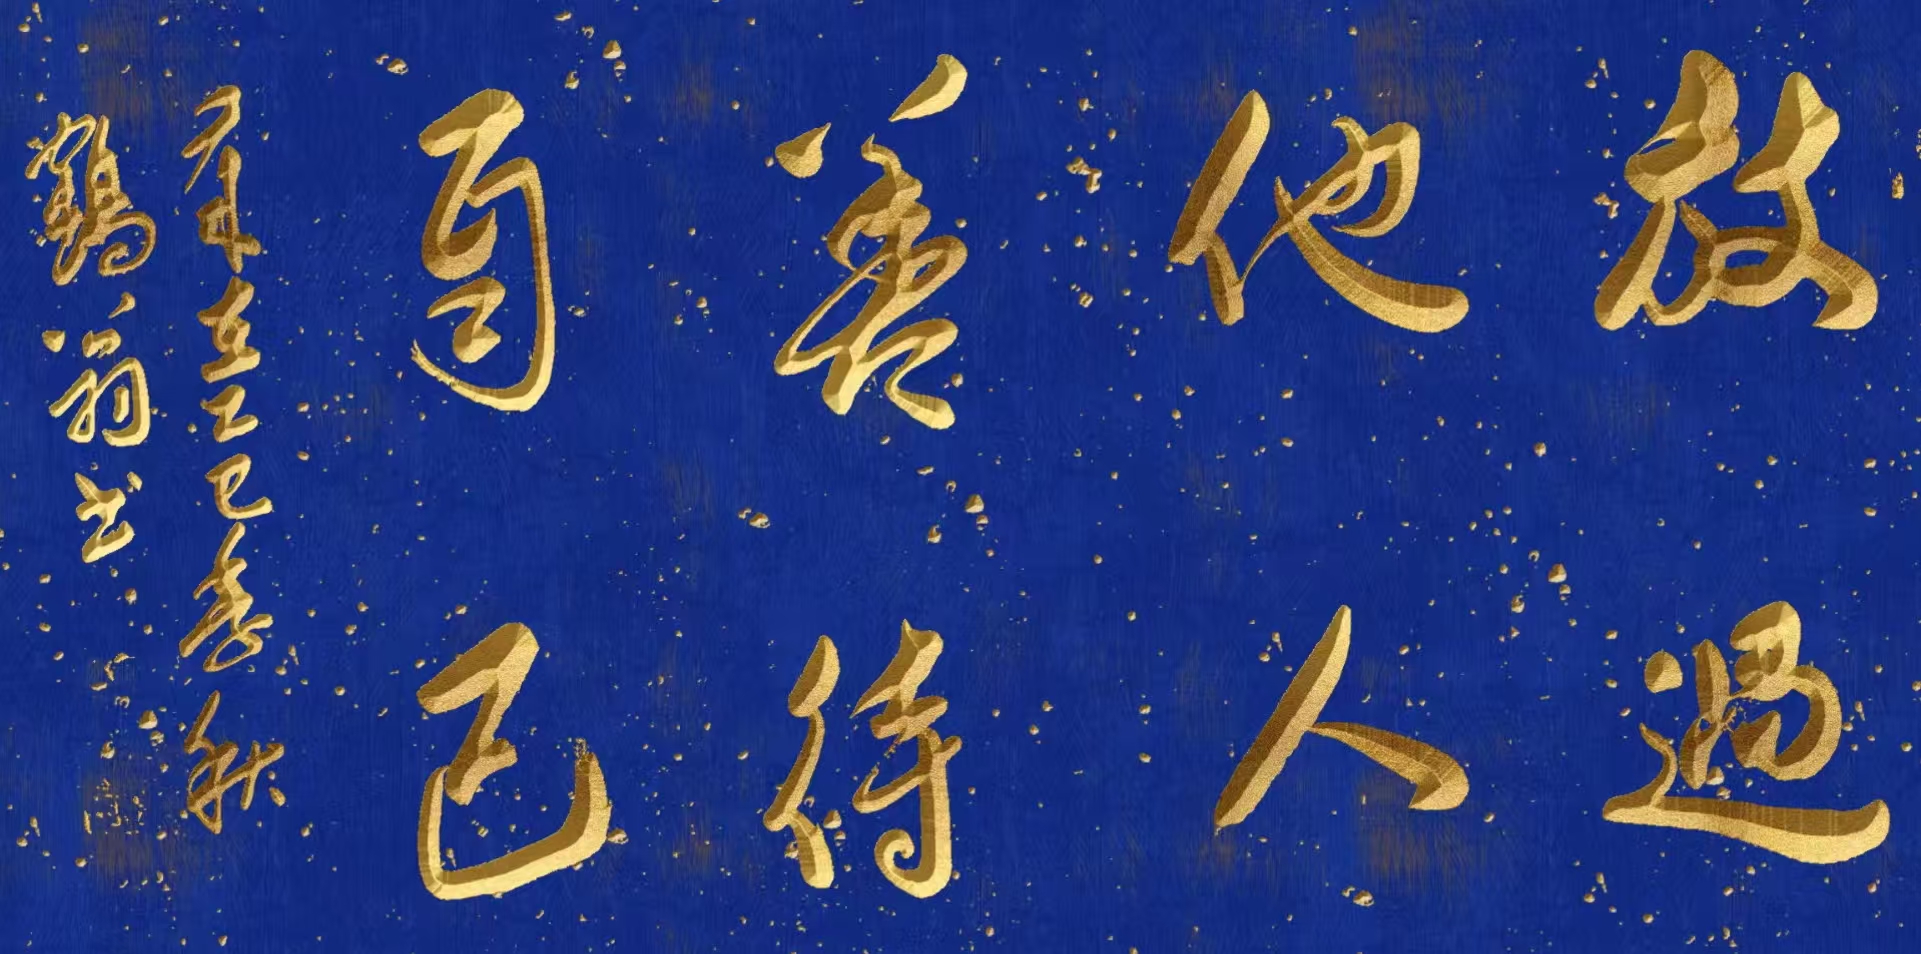 放過
他人
善待
自己
歲在乙巳季秋
鶴翁书